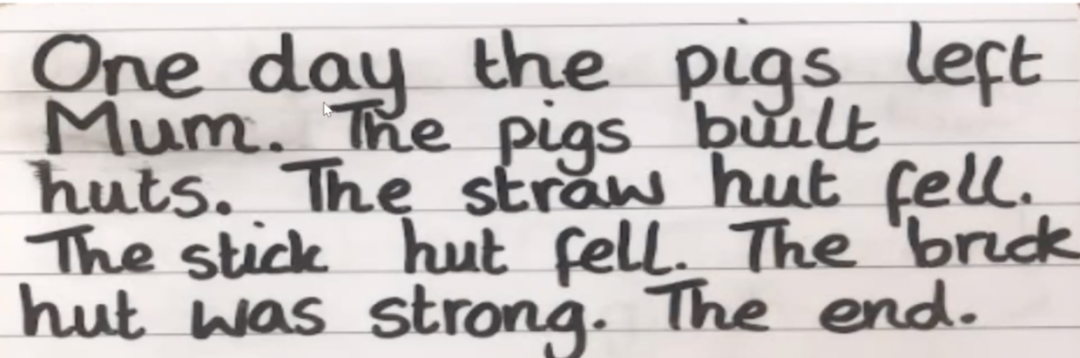 One day the pigs left
Mum. The pigs built
huts. The straw hut fell.
The stick hut fell. The brick
hut was strong. The end.